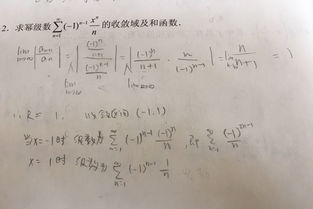 2. 求幂级数 $\sum_{n=1}^{\infty}(-1)^{n-1}\frac{x^n}{n}$ 的收敛域及和函数.
$\lim_{n\to\infty}\left|\frac{a_{n+1}}{a_n}\right| = \left|\frac{\frac{(-1)^n}{n+1}}{\frac{(-1)^{n-1}}{n}}\right| = \left|\frac{(-1)^n}{n+1}\cdot\frac{n}{(-1)^{n-1}}\right| = \lim_{n\to\infty}\frac{n}{n+1} = 1$
∴ R = 1. 收敛区间 (-1,1)
当x=-1时 级数为 $\sum_{n=1}^{\infty}(-1)^{n-1}\frac{(-1)^n}{n}$, 即 $\sum_{n=1}^{\infty}\frac{(-1)^{2n-1}}{n}$
x=1时 级数为 $\sum_{n=1}^{\infty}(-1)^{n-1}\frac{1}{n}$